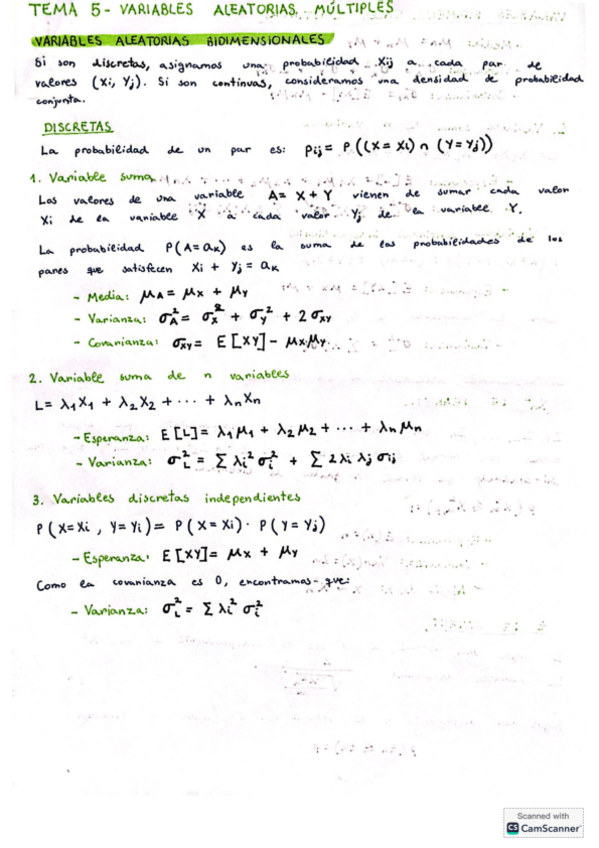 TEMA 5 - VARIABLES ALEATORIAS MÚLTIPLES
VARIABLES ALEATORIAS BIDIMENSIONALES
Si son discretas, asignamos una probabilidad Xij a cada par de
valores (Xi, Yj). Si son continuas, consideramos una densidad de probabilidad
conjunta.
DISCRETAS
La probabilidad de un par es: Pij = P((X = Xi) ∩ (Y = Yj))
1. Variable suma
Los valores de una variable A = X + Y vienen de sumar cada valor
Xi de la variable X a cada valor Yj de la variable Y.
La probabilidad P(A = ak) es la suma de las probabilidades de los
pares que satisfacen Xi + Yj = ak
- Media: μA = μx + μy
- Varianza: σ²A = σ²x + σ²y + 2σxy
- Covarianza: σxy = E[XY] - μxμy
2. Variable suma de n variables
L = λ1X1 + λ2X2 + ··· + λnXn
- Esperanza: E[L] = λ1μ1 + λ2μ2 + ··· + λnμn
- Varianza: σ²L = Σ λi² σi² + Σ 2λi λj σij
3. Variables discretas independientes
P(X = Xi, Y = Yi) = P(X = Xi) · P(Y = Yj)
- Esperanza: E[XY] = μx + μy
Como la covarianza es 0, encontramos que:
- Varianza: σ²L = Σ λi² σi²
Scanned with
CS CamScanner